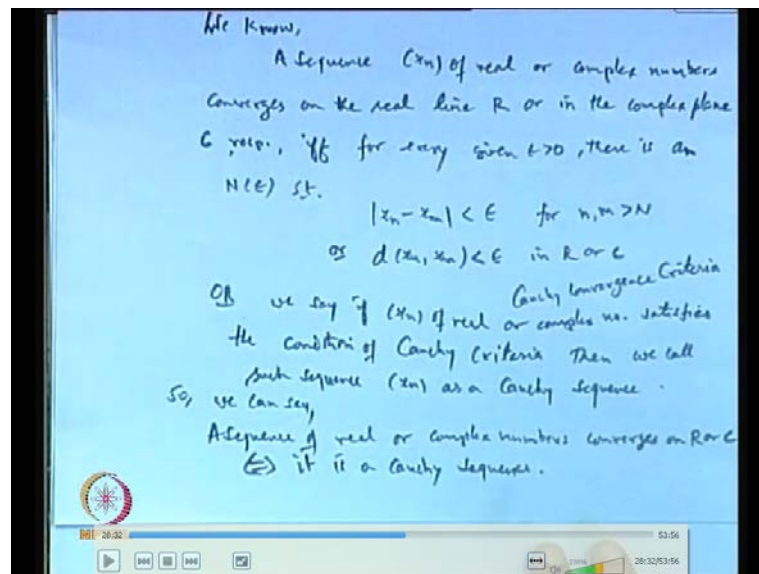 We know,
A Sequence (xn) of real or complex numbers
converges on the real line R or in the complex plane
C resp., iff for every given ε>0, there is an
N(ε) st.
|xn - xm| < ε for n,m >N
or d(xn, xm) < ε in R or C
Cauchy Convergence Criteria
OR we say if (xn) of real or complex no. satisfies
the condition of Cauchy Criteria Then we call
such sequence (xn) as a Cauchy sequence.
So, we can say,
A sequence of real or complex numbers converges on R or C
⇔ it is a Cauchy sequence.
28:32
53:56
28:32/53:56